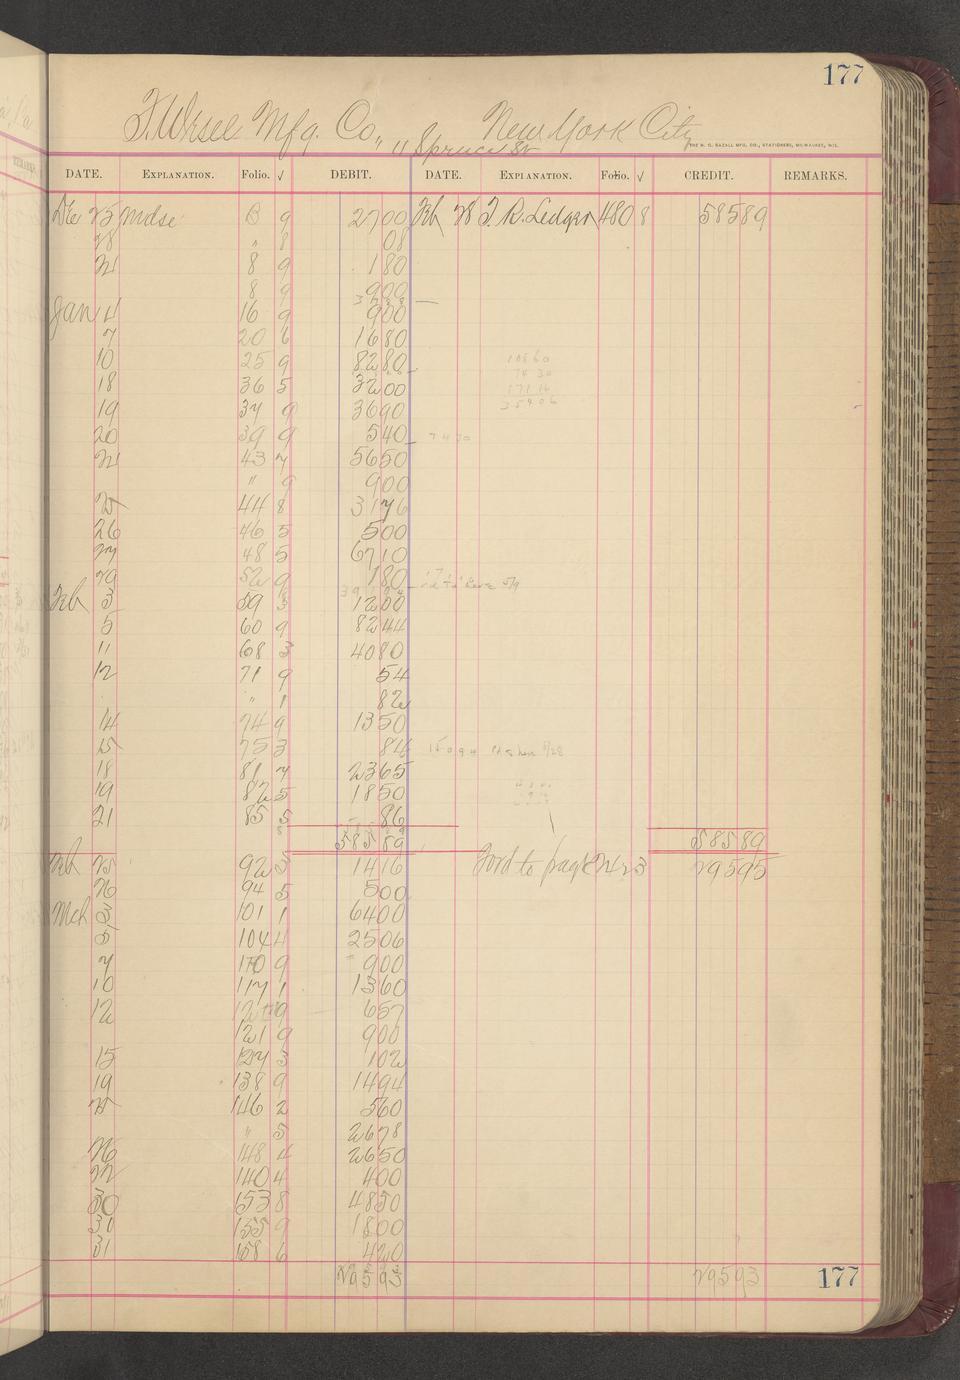 177
Mfg. Co., 11 Spruce St New York City
THE H. G. RAZALL MFG. CO., STATIONERS, MILWAUKEE, WIS.
DATE. EXPLANATION. FOLIO. √ DEBIT. DATE. EXPLANATION. FOLIO. √ CREDIT. REMARKS.
Dec 25 Mdse 9 2700 Feb 28 Ledger 480 8 58589
28 " 8 08
21 8 9 180
8 9 900
Jan 4 16 9 900
7 20 6 1680
10 25 9 8280
18 36 5 3200
19 37 9 3690
20 39 9 540
21 43 7 5650
" 9 900
25 44 8 3176
26 46 5 500
27 48 5 6710
29 52 9 180
Feb 3 59 3 1200
5 60 9 8244
11 68 3 4080
12 71 9 54
" 1 82
14 74 9 1350
15 75 3 84
18 81 7 2365
19 82 5 1850
21 85 5 86
58589 58589
Feb 25 92 5 1416 Ford to page 29595
26 94 5 500
Mch 3 101 1 6400
5 104 4 2506
7 110 9 900
10 117 1 1360
12 9 657
121 9 900
15 127 3 102
19 138 9 1494
25 146 2 560
" 5 2678
26 148 4 2650
27 140 4 400
30 153 8 4850
31 155 9 1800
31 158 6 420
29593 29593
177